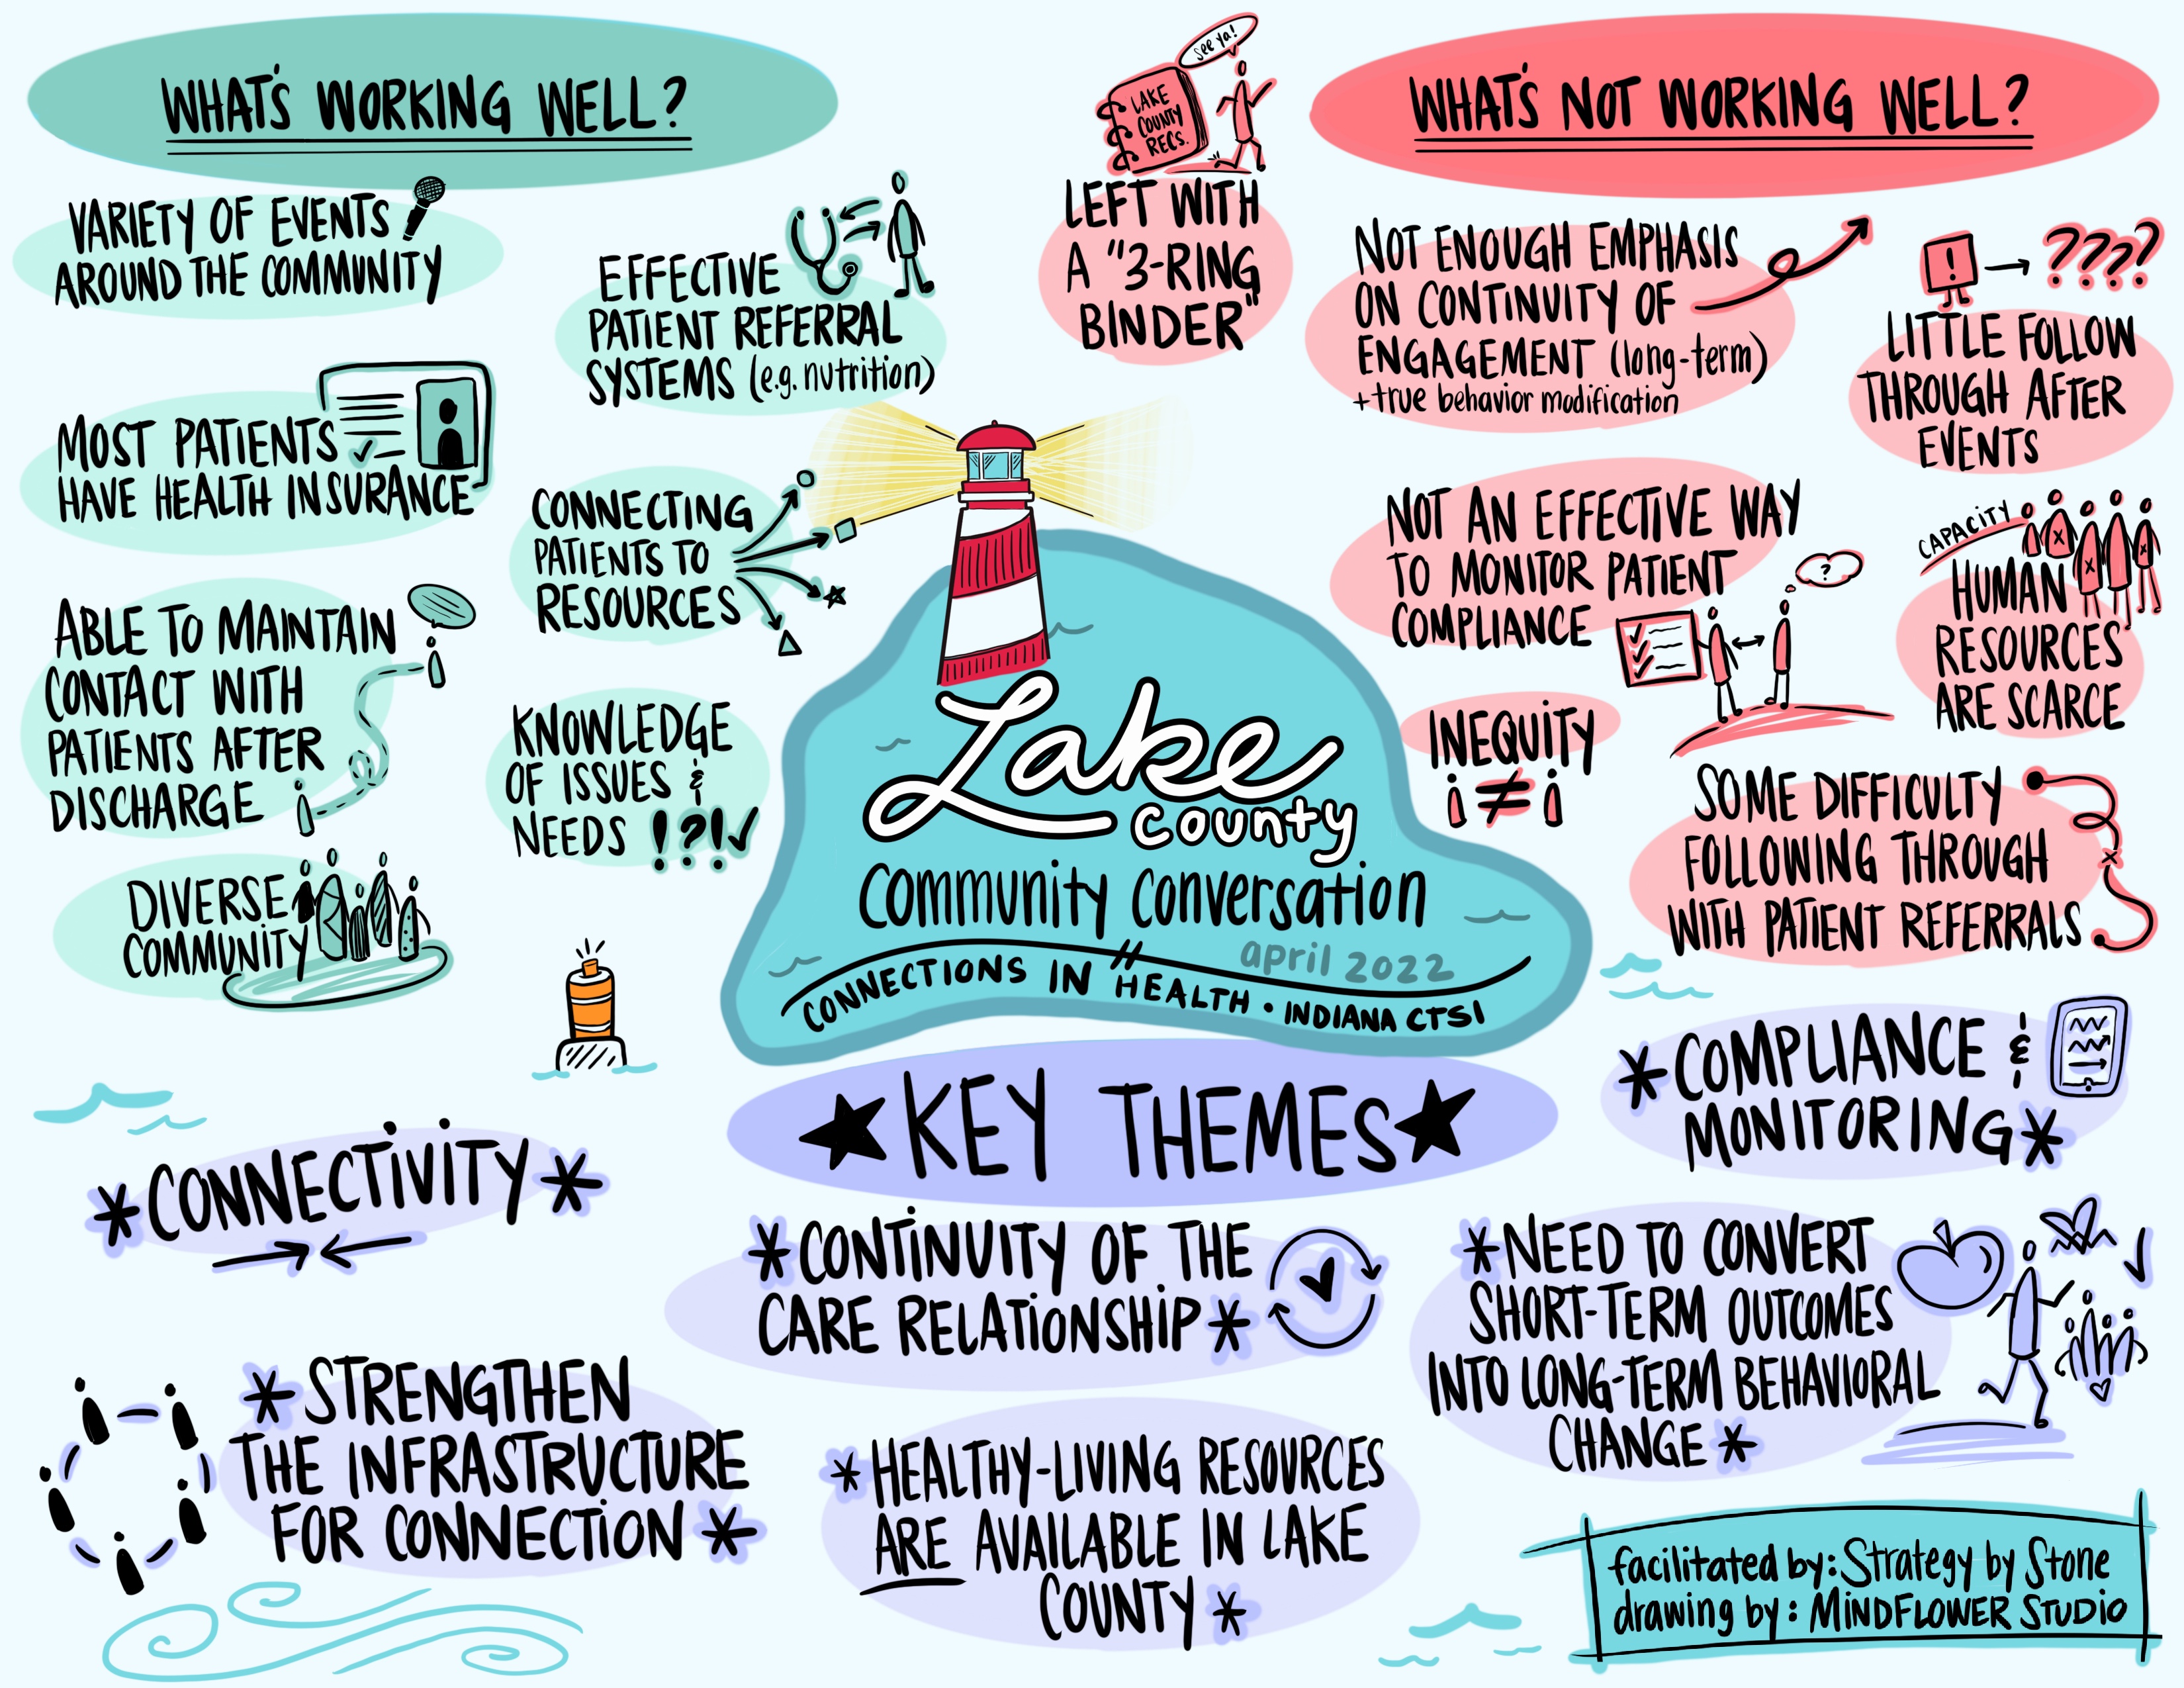 WHAT'S WORKING WELL?
VARIETY OF EVENTS
AROUND THE COMMUNITY
EFFECTIVE
PATIENT REFERRAL
SYSTEMS (e.g. nutrition)
MOST PATIENTS
HAVE HEALTH INSURANCE
CONNECTING
PATIENTS TO
RESOURCES
ABLE TO MAINTAIN
CONTACT WITH
PATIENTS AFTER
DISCHARGE
KNOWLEDGE
OF ISSUES &
NEEDS !?!
DIVERSE
COMMUNITY
see ya!
LAKE
COUNTY
RECS.
LEFT WITH
A "3-RING
BINDER"
WHAT'S NOT WORKING WELL?
NOT ENOUGH EMPHASIS
ON CONTINUITY OF
ENGAGEMENT (long-term)
+true behavior modification
! ????
LITTLE FOLLOW
THROUGH AFTER
EVENTS
NOT AN EFFECTIVE WAY
TO MONITOR PATIENT
COMPLIANCE
?
CAPACITY
HUMAN
RESOURCES
ARE SCARCE
INEQUITY
≠
SOME DIFFICULTY
FOLLOWING THROUGH
WITH PATIENT REFERRALS
Lake
county
Community Conversation
april 2022
CONNECTIONS IN HEALTH • INDIANA CTSI
★KEY THEMES★
*CONNECTIVITY*
*STRENGTHEN
THE INFRASTRUCTURE
FOR CONNECTION*
*CONTINUITY OF THE
CARE RELATIONSHIP*
*HEALTHY-LIVING RESOURCES
ARE AVAILABLE IN LAKE
COUNTY*
*COMPLIANCE &
MONITORING*
*NEED TO CONVERT
SHORT-TERM OUTCOMES
INTO LONG-TERM BEHAVIORAL
CHANGE*
facilitated by: Strategy by Stone
drawing by: MINDFLOWER STUDIO